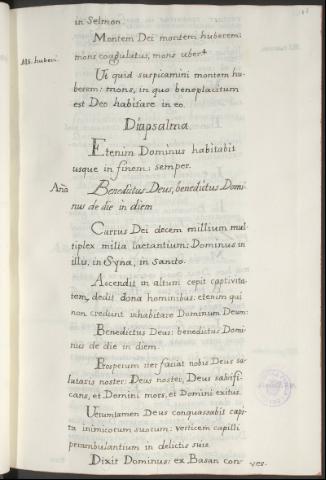 in Selmon.
Montem Dei montem huberem:
mons coagulatus, mons uber.
Ms. huberi.
Ut quid suspicamini montem hu-
berem: mons, in quo beneplacitum
est Deo habitare in eo.
Diapsalma
Etenim Dominus habitabit
usque in finem: semper.
Aña
Benedictus Deus, benedictus Domi-
nus de die in diem
Currus Dei decem millium mul-
tiplex milia laetantium: Dominus in
illis, in Syna, in Sancto.
Ascendit in altum cepit captivita-
tem, dedit dona hominibus: etenim qui
non credunt inhabitare Dominum Deum:
Benedictus Deus: benedictus Domi-
nus de die in diem.
Prosperum iter faciat nobis Deus sa-
lutaris noster: Deus noster, Deus salvifi-
cans, et Domini mors, et Domini exitus.
Verumtamen Deus conquassabis capi-
ta inimicorum suorum: verticem capilli
perambulantium in delictis suis.
Dixit Dominus: ex Basan con-